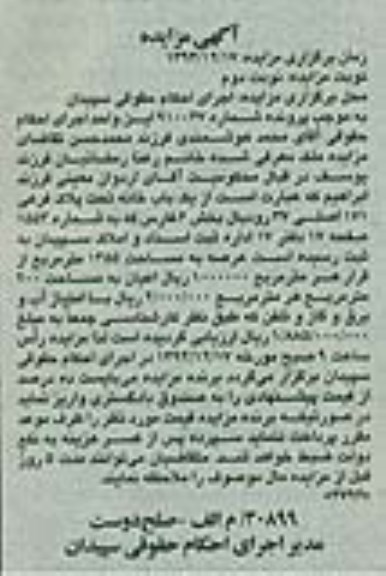 آگهی مزایده
زمان برگزاری مزایده: ۱۳۹۳/۱۲/۱۷
نوبت مزایده: نوبت دوم
محل برگزاری مزایده: اجرای احکام حقوقی سپیدان
به موجب پرونده شماره ۹۱۰۰۳۷ این واحد اجرای احکام
حقوقی آقای محمد هوشمندی فرزند محمدحسن تقاضای
مزایده ملک معرفی شده خانم رضا رمضانیان فرزند
یوسف در قبال محکومیت آقای اردوان معینی فرزند
ابراهیم که عبارت است از یک باب خانه تحت پلاک فرعی
۱۷۱ اصلی ۳۷ رودبال بخش ۶ فارس که به شماره ۱۵۵۳
صفحه ۱۷ دفتر ۱۲ اداره ثبت اسناد و املاک سپیدان به
ثبت رسیده است عرصه به مساحت ۱۳۵۵ مترمربع از
قرار هر مترمربع ۱۰۰۰۰۰۰ ریال اعیان به مساحت ۲۰۰
مترمربع هر مترمربع ۲/۰۰۰/۰۰۰ ریال با امتیاز آب و
برق و گاز و تلفن که طبق نظر کارشناسی جمعا به مبلغ
ریال ارزیابی گردیده است لذا مزایده رأس
ساعت ۹ صبح مورخه ۱۳۹۳/۱۲/۱۷ در اجرای احکام حقوقی
سپیدان برگزار می‌گردد برنده مزایده می‌بایست ده درصد
از قیمت پیشنهادی را به صندوق دادگستری واریز نماید
در صورتیکه برنده مزایده قیمت مورد نظر را ظرف موعد
مقرر پرداخت ننماید سپرده پس از کسر هزینه به نفع
دولت ضبط خواهد شد. متقاضیان می‌توانند مدت ۵ روز
قبل از مزایده مال موصوف را ملاحظه نمایند.
۳۰۸۹۹/ م الف - صلح‌دوست
مدیر اجرای احکام حقوقی سپیدان